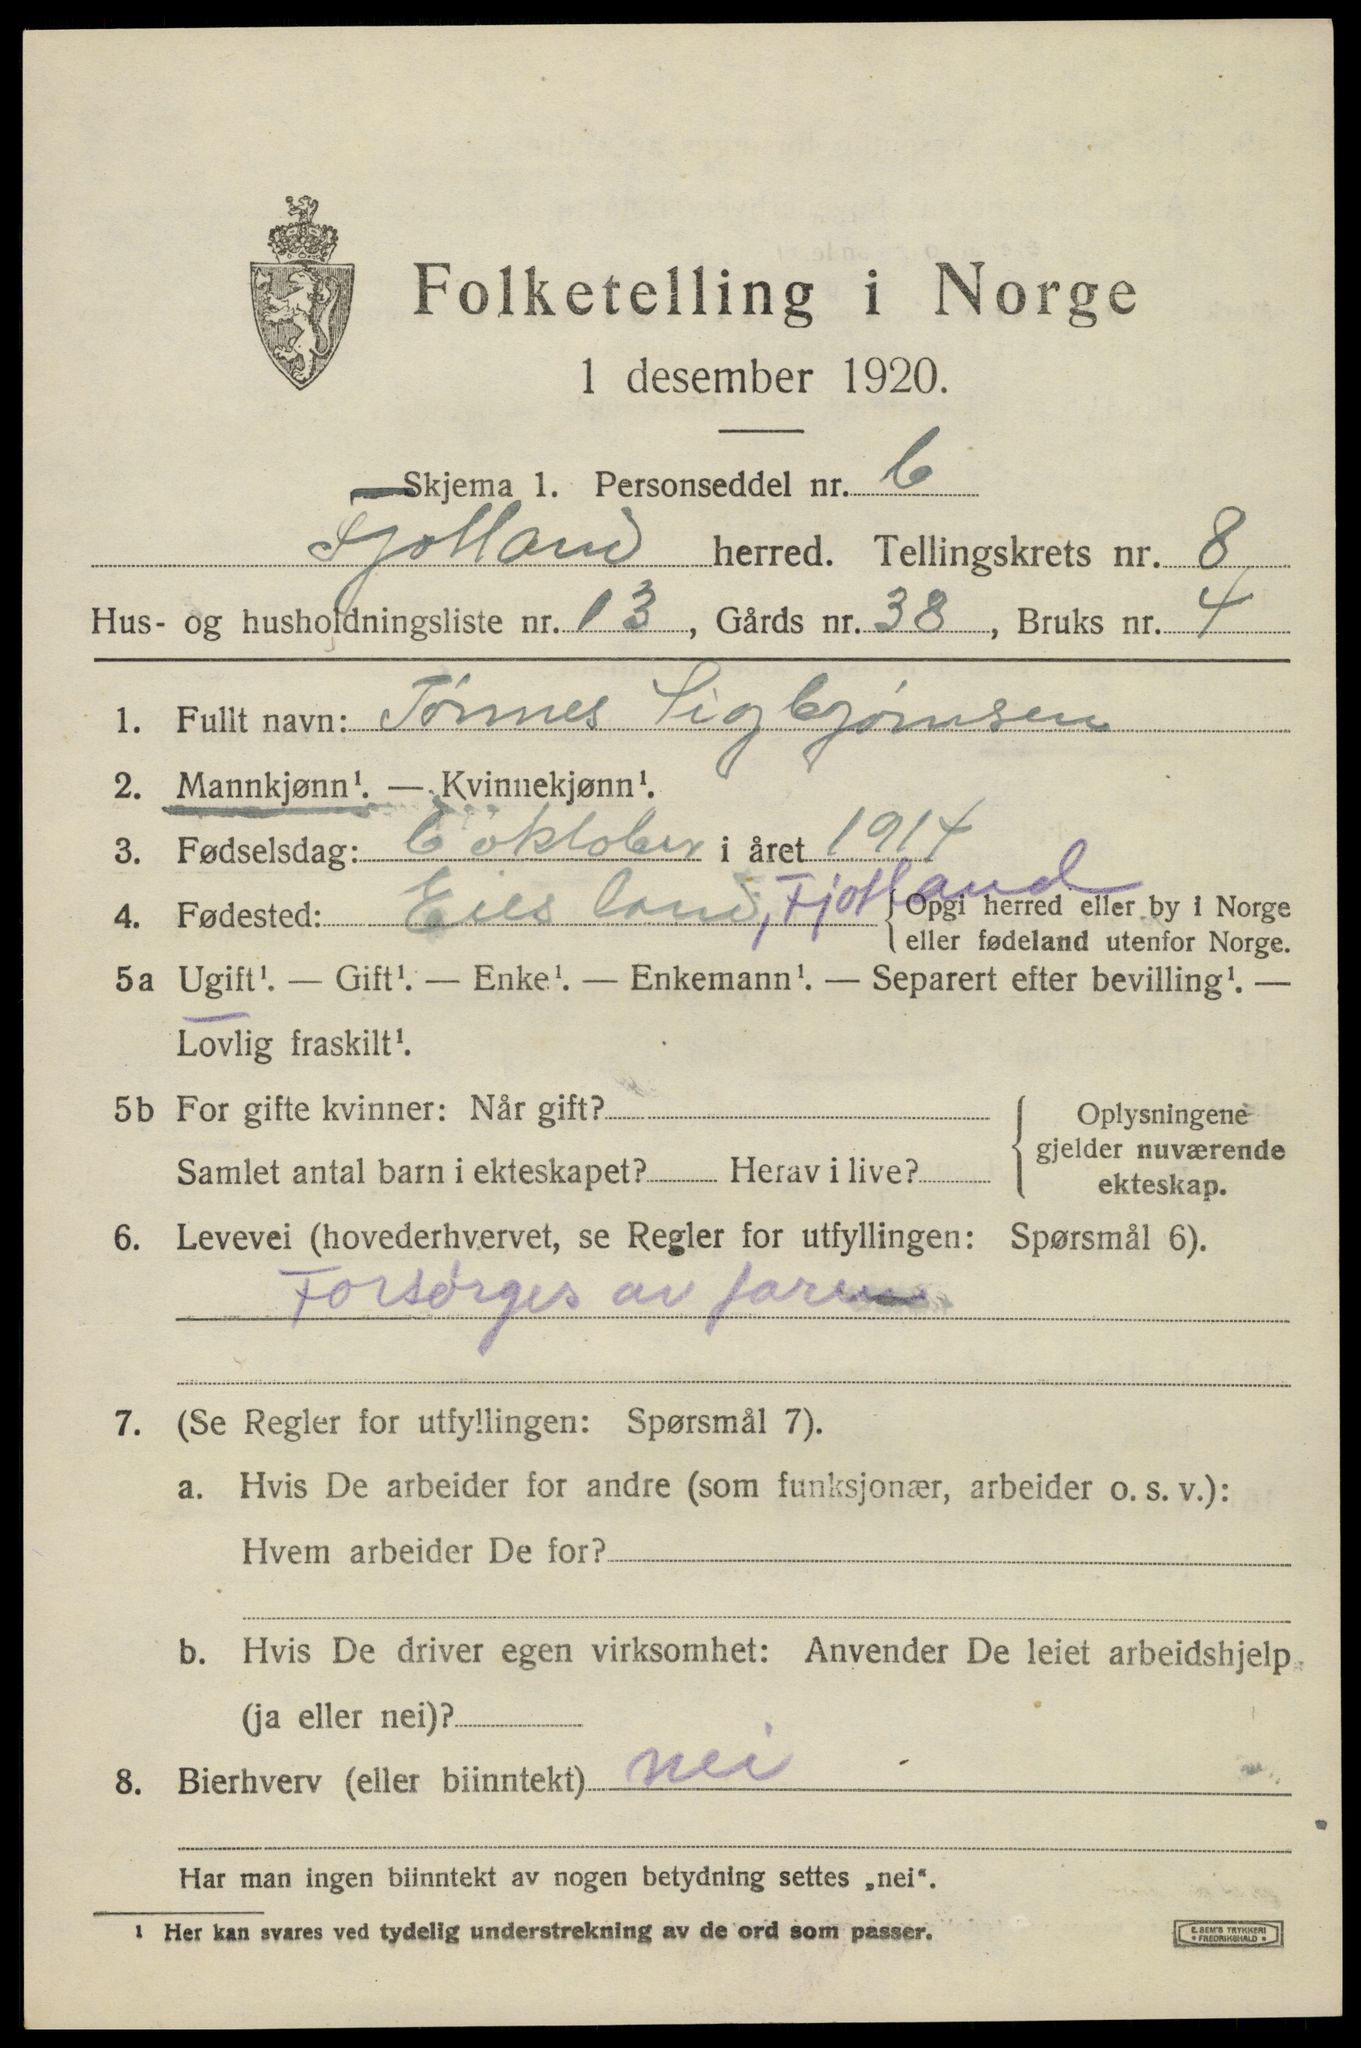 Folketelling i Norge
1 desember 1920.
Skjema 1. Personseddel nr. 6
Fjotland herred. Tellingskrets nr. 8
Hus- og husholdningsliste nr. 13, Gårds nr. 38, Bruks nr. 4
1. Fullt navn: Tønnes Sigbjørnsen
2. Mannkjønn¹. — Kvinnekjønn¹.
3. Fødselsdag: 6 oktober i året 1914
4. Fødested: Eiesland, Fjotland {Opgi herred eller by i Norge
eller fødeland utenfor Norge.
5a Ugift¹. — Gift¹. — Enke¹. — Enkemann¹. — Separert efter bevilling¹. —
Lovlig fraskilt¹.
5b For gifte kvinner: Når gift?
Samlet antal barn i ekteskapet? Herav i live?
{Oplysningene
gjelder nuværende
ekteskap.
6. Levevei (hovederhvervet, se Regler for utfyllingen: Spørsmål 6).
Forsørges av faren
7. (Se Regler for utfyllingen: Spørsmål 7).
a. Hvis De arbeider for andre (som funksjonær, arbeider o. s. v.):
Hvem arbeider De for?
b. Hvis De driver egen virksomhet: Anvender De leiet arbeidshjelp
(ja eller nei)?
8. Bierhverv (eller biinntekt) nei
Har man ingen biinntekt av nogen betydning settes „nei“.
¹ Her kan svares ved tydelig understrekning av de ord som passer.
E. SEM'S TRYKKERI
* FREDRIKSHALD *